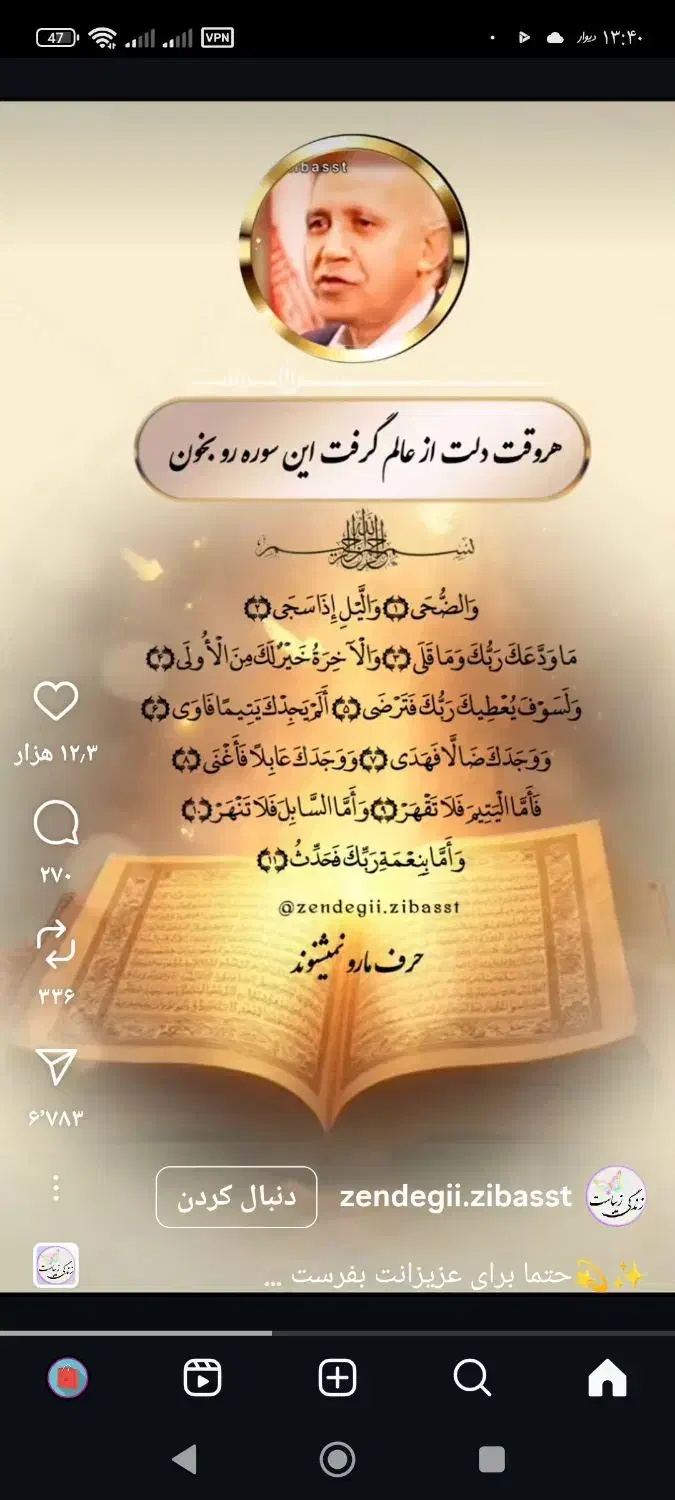 47 VPN دیوار ۱۳:۴۰
ibasst
هروقت دلت از عالم گرفت این سوره رو بخون
بسم الله الرحمن الرحیم
وَالضُّحَى ﴿١﴾ وَالَّيْلِ إِذَا سَجَى ﴿٢﴾
مَا وَدَّعَكَ رَبُّكَ وَمَا قَلَى ﴿٣﴾ وَالْآخِرَةُ خَيْرٌ لَكَ مِنَ الْأُولَى ﴿۴﴾
وَلَسَوْفَ يُعْطِيكَ رَبُّكَ فَتَرْضَى ﴿۵﴾ أَلَمْ يَجِدْكَ يَتِيمًا فَآوَى ﴿۶﴾
وَوَجَدَكَ ضَالًّا فَهَدَى ﴿٧﴾ وَوَجَدَكَ عَابِلًا فَأَغْنَى ﴿٨﴾
فَأَمَّا الْيَتِيمَ فَلَا تَقْهَرْ ﴿٩﴾ وَأَمَّا السَّابِلَ فَلَا تَنْهَرْ ﴿١٠﴾
وَأَمَّا بِنِعْمَةِ رَبِّكَ فَحَدِّثْ ﴿١١﴾
@zendegii.zibasst
حرف مارو نمیشنوند
۱۲٫۳ هزار
۲۷۰
۳۳۶
۶٬۷۸۳
zendegii.zibasst دنبال کردن
زندگی زیباست
✨💫حتما برای عزیزانت بفرست ...
زندگی زیباست